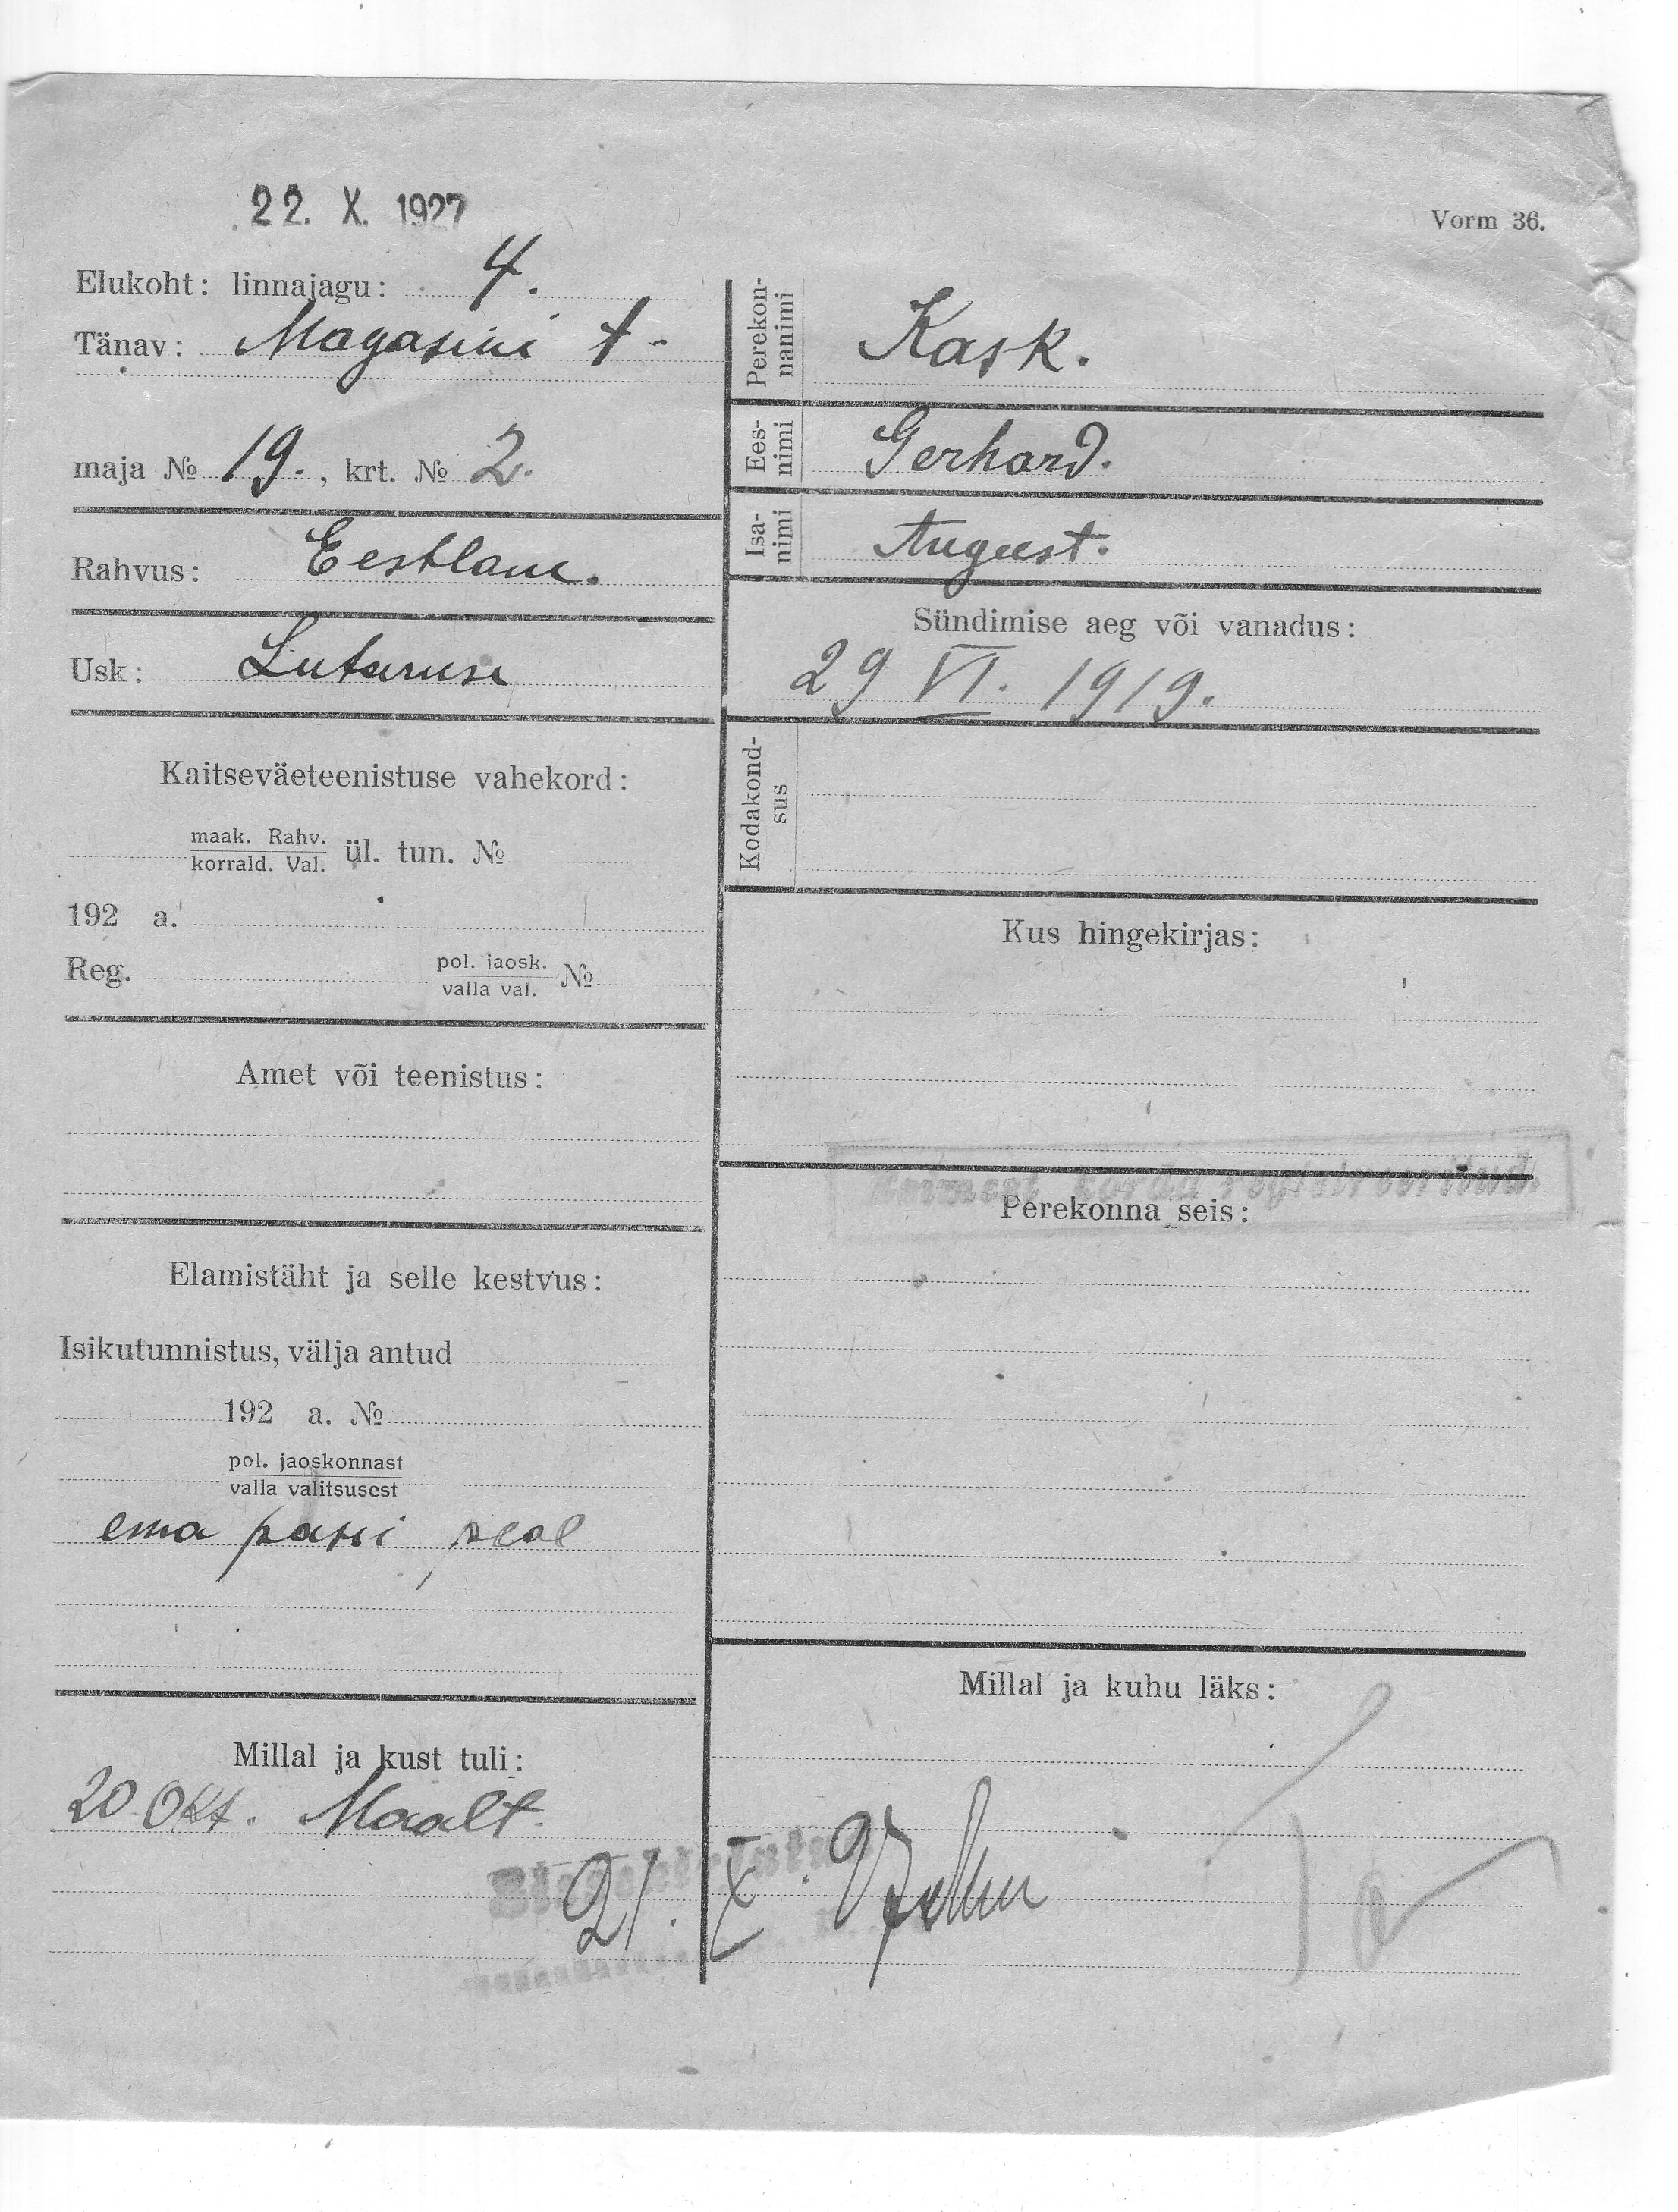 22. X. 1927
Vorm 36.
Elukoht: linnajagu: 4.
Tänav: Magasini t-
maja № 19., krt. № 2.
Rahvus: Eestlane.
Usk: Luterusu
Kaitseväeteenistuse vahekord:
maak. Rahv.
korrald. Val.
ül. tun. №
192 a.
Reg. pol. jaosk.
valla val.
№
Amet või teenistus:
Elamistäht ja selle kestvus:
Isikutunnistus, välja antud
192 a. №
pol. jaoskonnast
valla valitsusest
ema passi peal
Millal ja kust tuli:
20 Okt. Maalt.
Perekon-
nanimi
Kask.
Ees-
nimi
Gerhard.
Isa-
nimi
August.
Sündimise aeg või vanadus:
29 VI. 1919.
Kodakond-
sus
Kus hingekirjas:
Esimest korda registreeritud.
Perekonna seis:
Millal ja kuhu läks:
Sissekirjutatud
21. X.